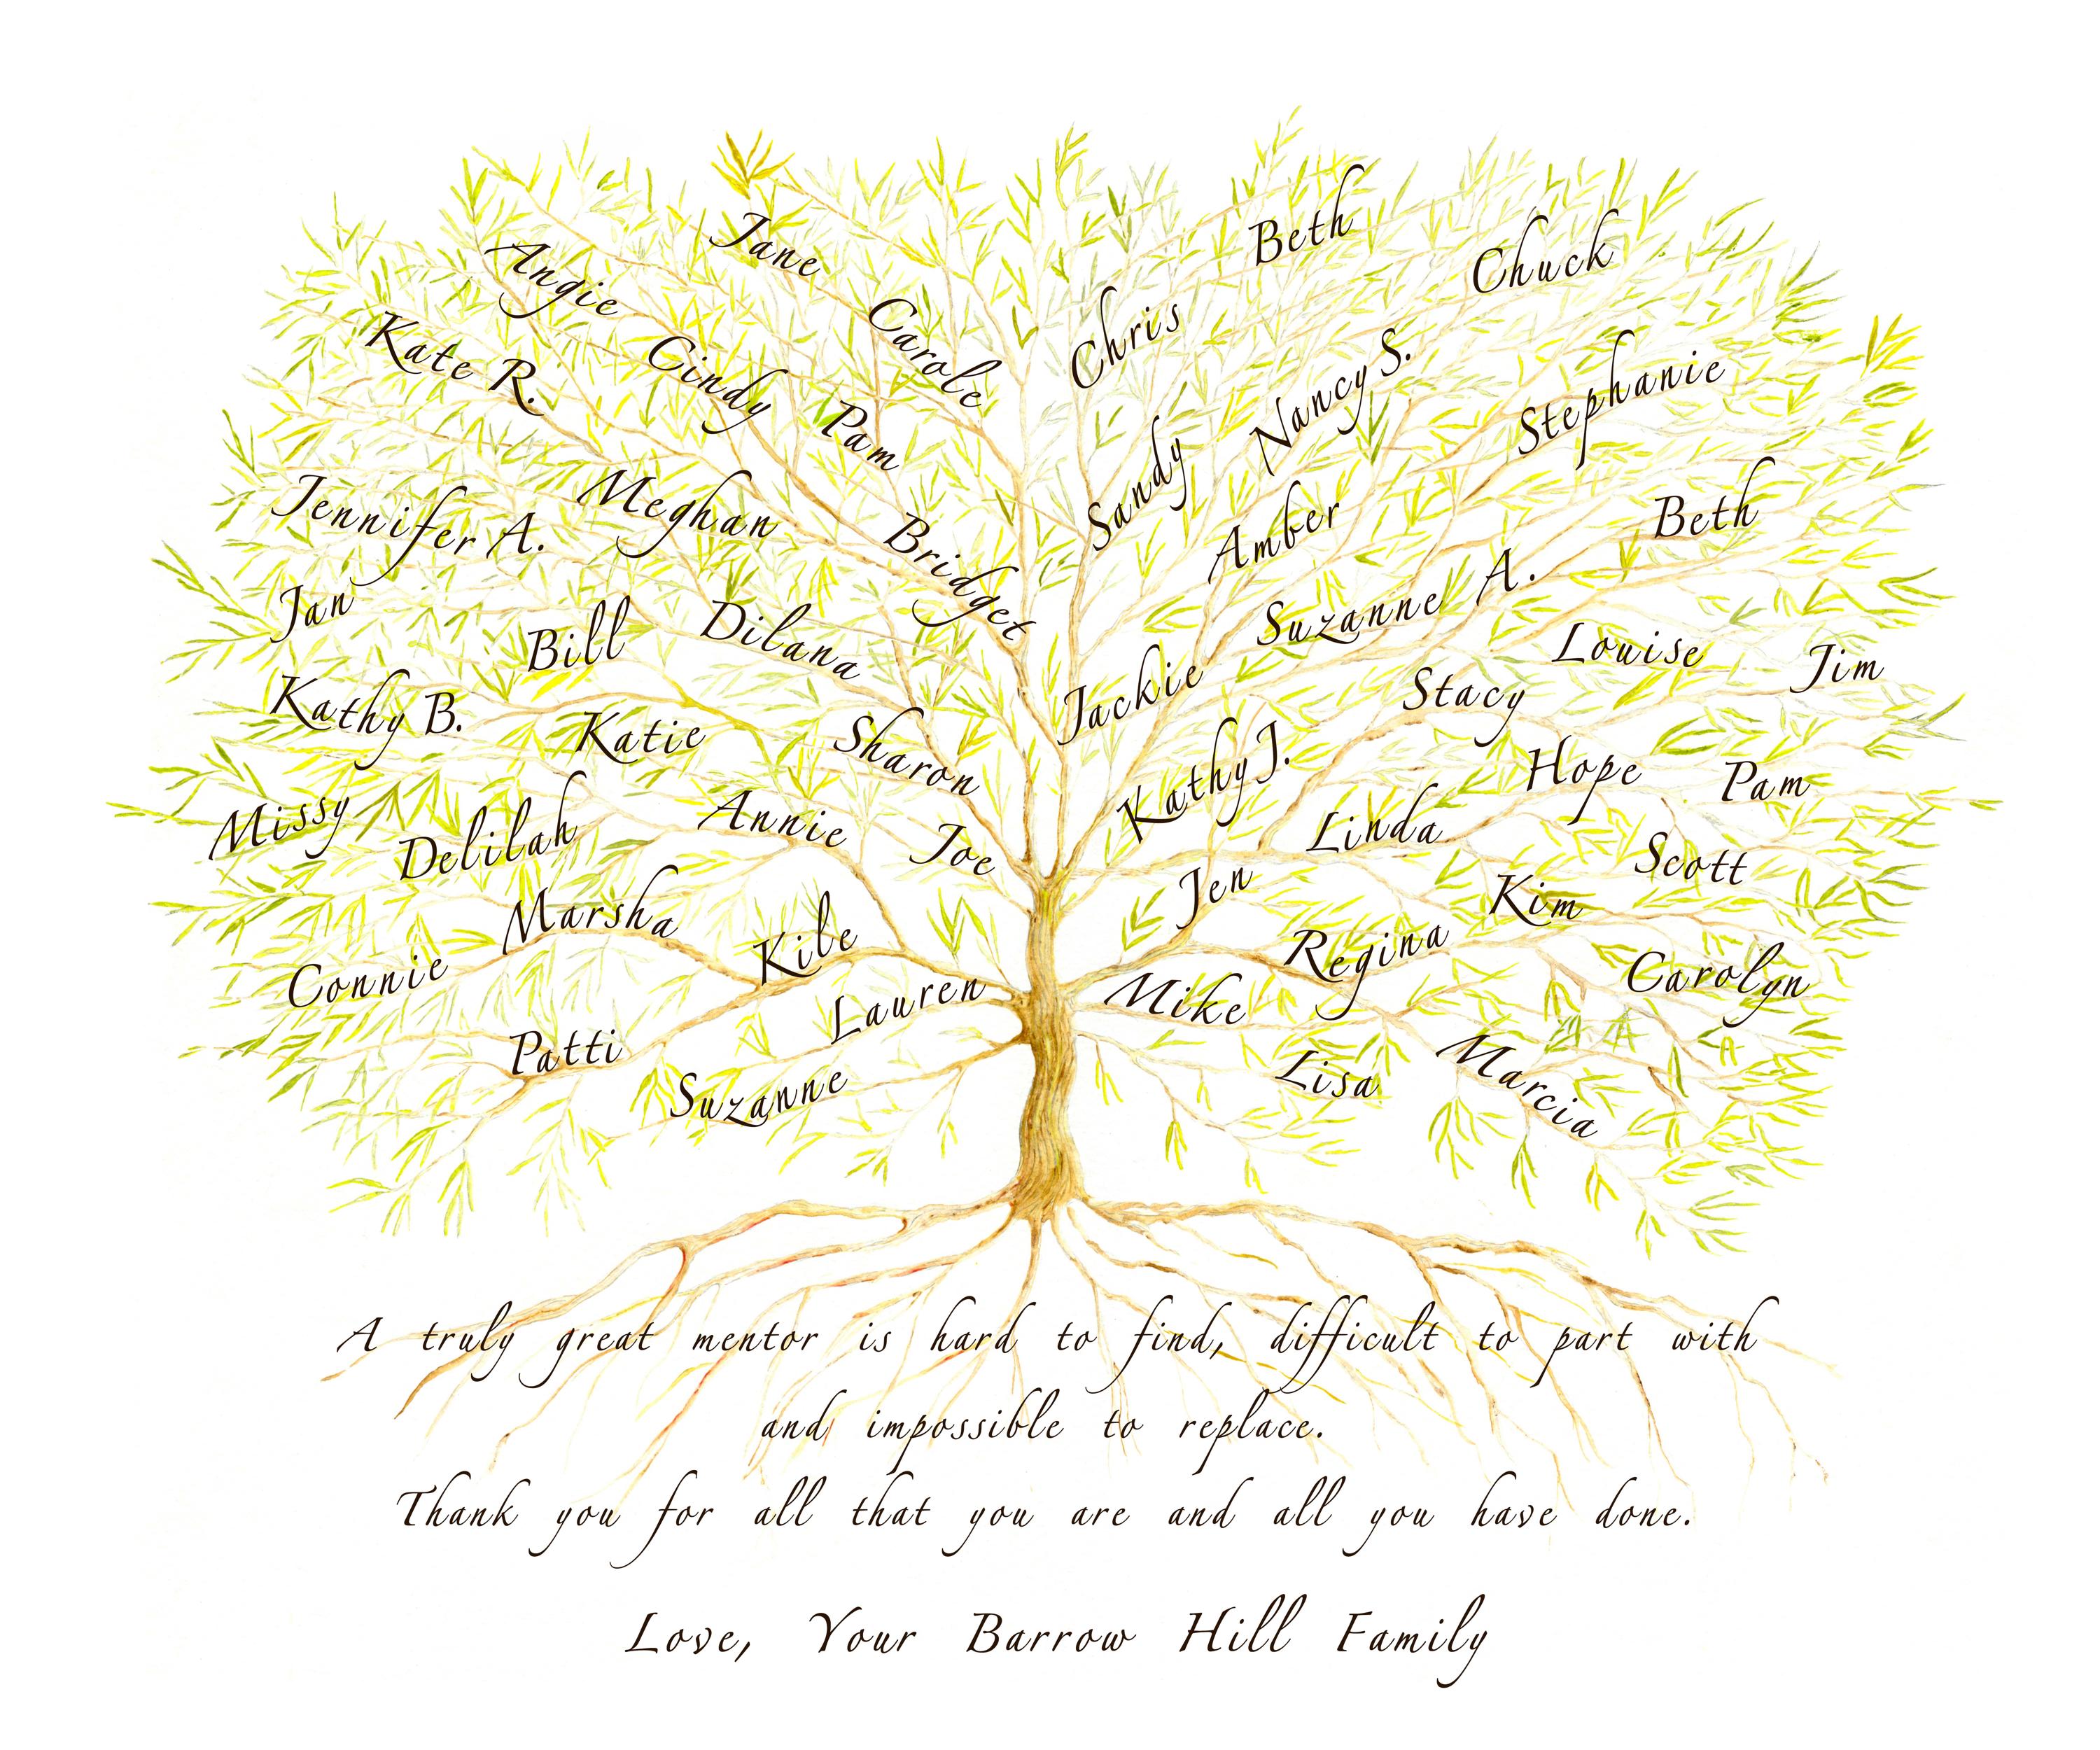 Jane
Beth
Angie
Chuck
Kate R.
Cindy
Carole
Chris
Pam
Nancy S.
Stephanie
Sandy
Jennifer A.
Meghan
Amber
Beth
Bridget
Jan
Bill
Dilana
Suzanne A.
Louise
Jim
Jackie
Stacy
Kathy B.
Katie
Sharon
Kathy J.
Hope
Pam
Missy
Delilah
Annie
Joe
Linda
Scott
Marsha
Kile
Jen
Kim
Regina
Connie
Lauren
Mike
Carolyn
Patti
Suzanne
Lisa
Marcia
A truly great mentor is hard to find, difficult to part with
and impossible to replace.
Thank you for all that you are and all you have done.
Love, Your Barrow Hill Family